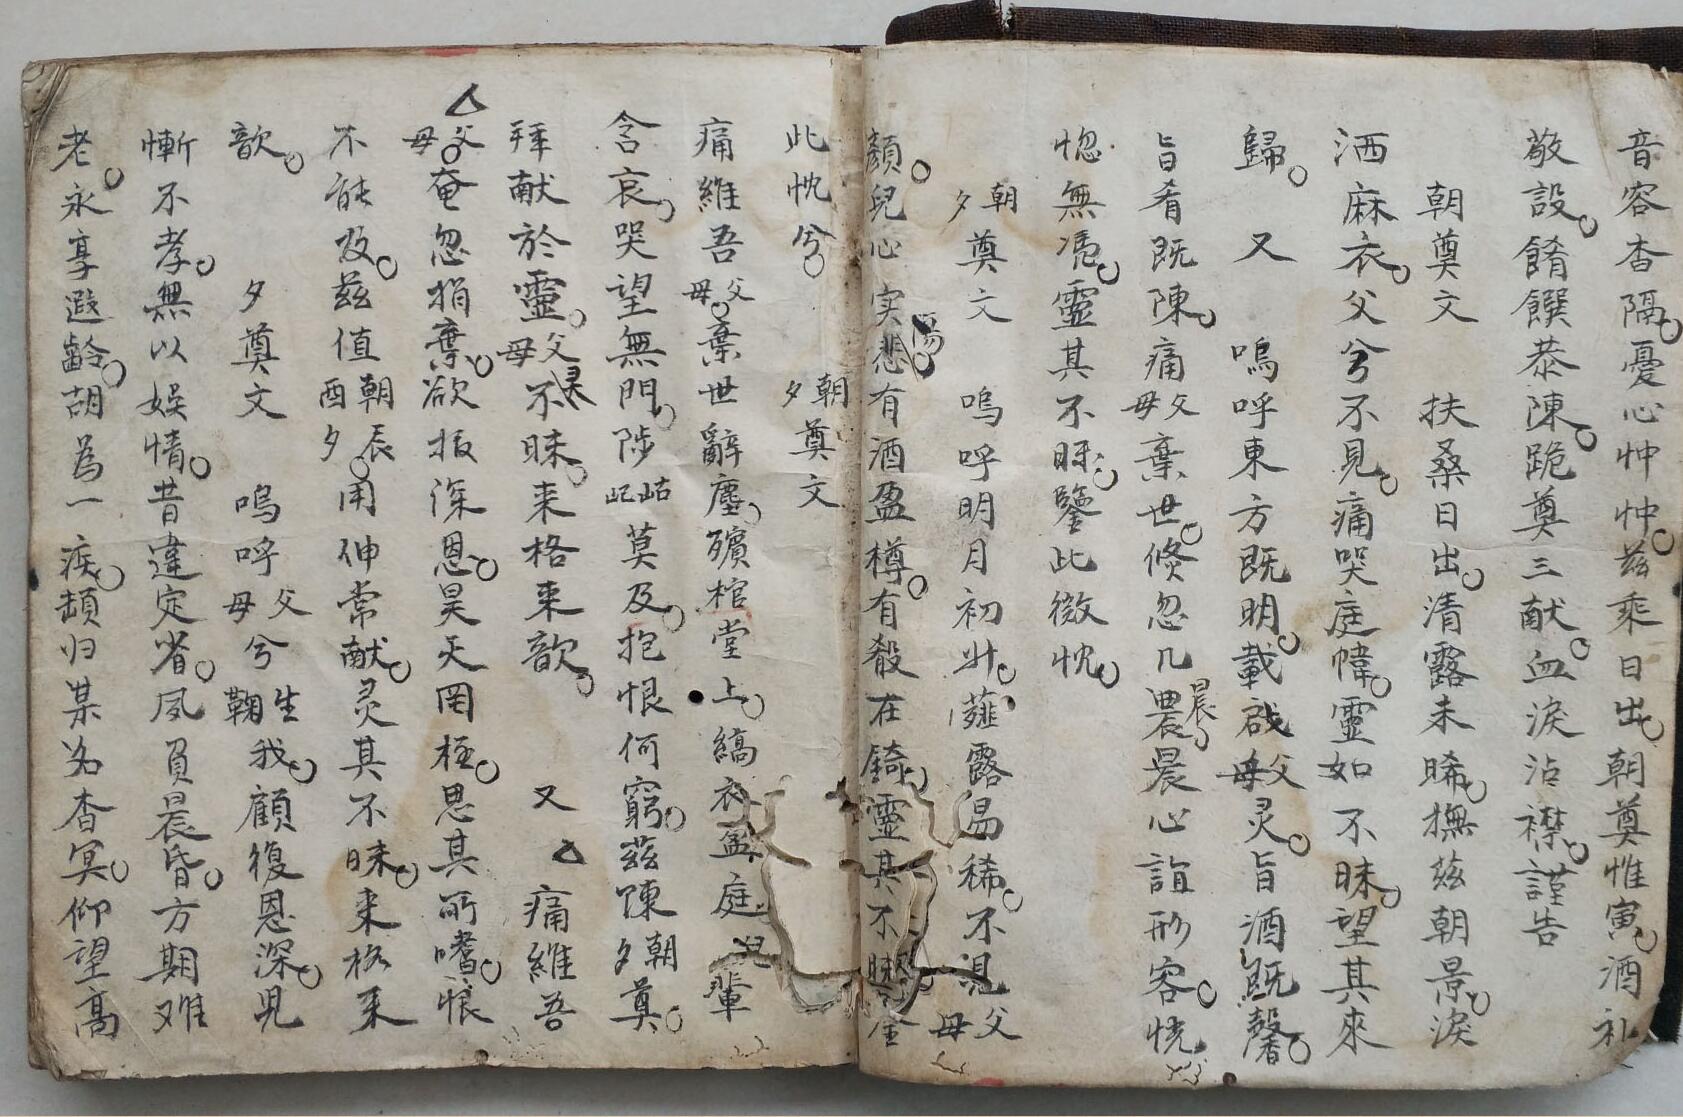 音容杳隔憂心忡忡茲乘日出朝奠惟寅酒礼
敬設餚饌恭陳跪奠三献血淚沾襟謹告
朝奠文 扶桑日出清露未晞撫茲朝景淚
洒麻衣父兮不見痛哭庭幃靈如不昧望其來
歸 又 嗚呼東方既明載啟父母灵旨酒既馨
旨肴既陳痛父母棄世倐忽几晨晨心詣形容恍
惚無憑靈其不昧鑒此微忱
朝夕奠文 嗚呼明月初升薤露易稀不見父母
顏兒心实悲傷有酒盈樽有殽在錡靈其不昧
此忱兮 朝夕奠文
痛維吾父母棄世辭塵殯棺堂上縞衣盈庭兒輩
含哀哭望無門陟岵屺莫及抱恨何窮茲陳朝夕奠
拜献於靈父母灵不昧来格来歆 又 痛維吾
父母奄忽捐棄欲报深恩昊天罔極思其所嗜恨
不能及茲值朝夕辰酉用伸常献灵其不昧来格来
歆 夕奠文 嗚呼父母兮生鞠我顧復恩深兒
慚不孝無以娛情昔違定省夙負晨昏方期难
老永享遐齡胡為一疾頓归杳冥仰望高